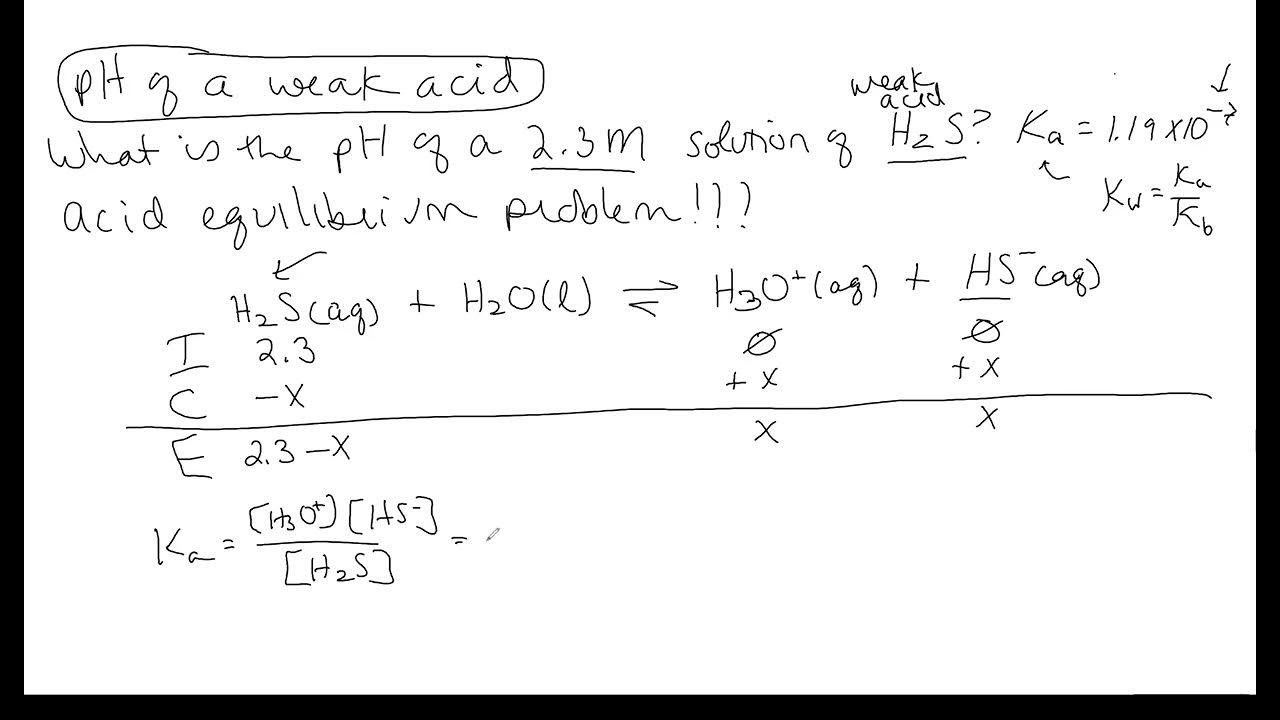 pH of a weak acid
weak
acid
What is the pH of a 2.3M solution of H₂S? Ka = 1.19 x 10⁻⁷
Kw = Ka/Kb
acid equilibrium problem!!!
H₂S(aq) + H₂O(l) ⇌ H₃O⁺(aq) + HS⁻(aq)
I 2.3 ∅ ∅
C -x +x +x
E 2.3-x x x
Ka = [H₃O⁺][HS⁻]/[H₂S] =